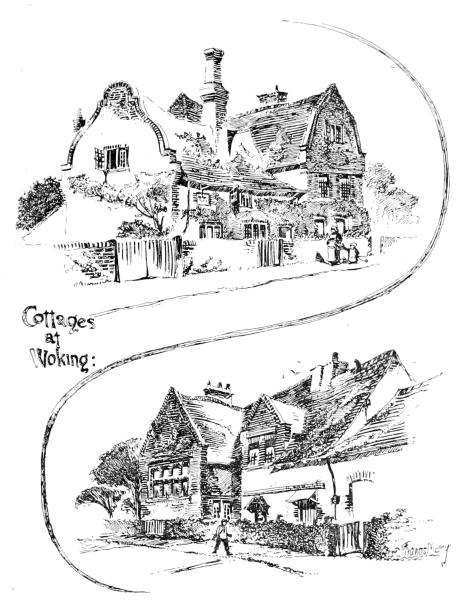 Cottages
at
Woking: